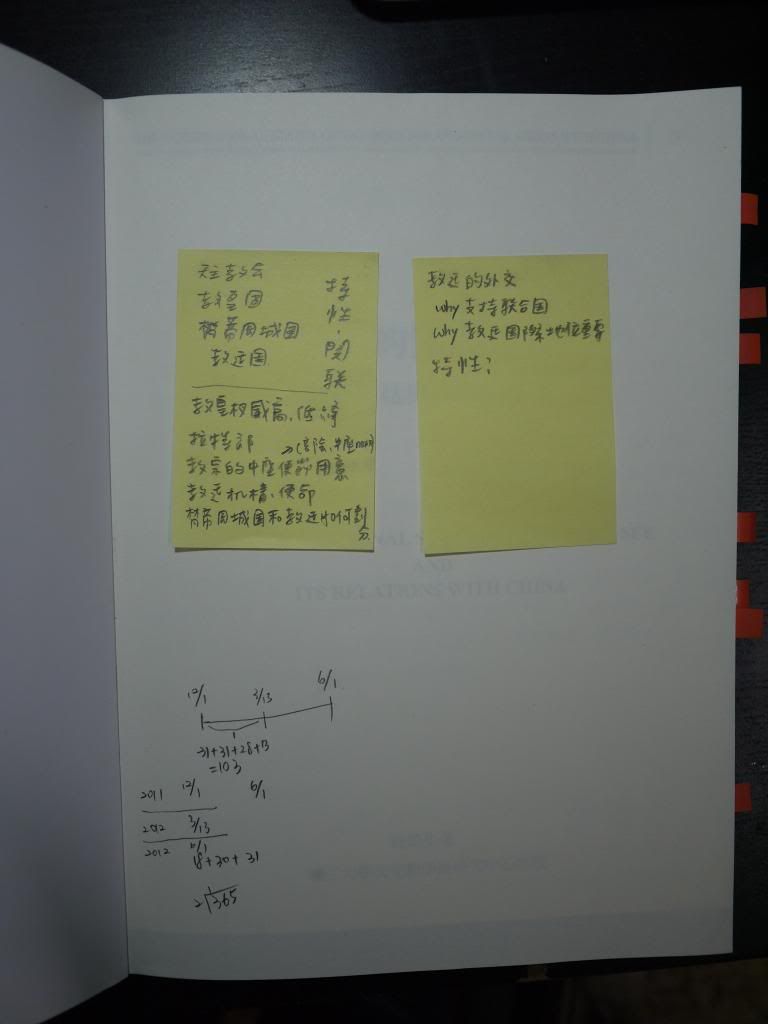 天主教会
教皇国
梵蒂冈城国
教廷国
特性.関联
教皇权威高、低
拉特郎
教宗的中座使節用意
教廷机構、使命
梵蒂冈城国和教廷如何劃分
教廷的外交
why 支持联合国
why 教廷国際地位重要
特性?
12/1 3/13 6/1
31+31+28+13
=103
2011 12/1 6/1
2012 3/13
2012 6/1
18+30+31
2√365
AND
ITS RELATIONS WITH CHINA